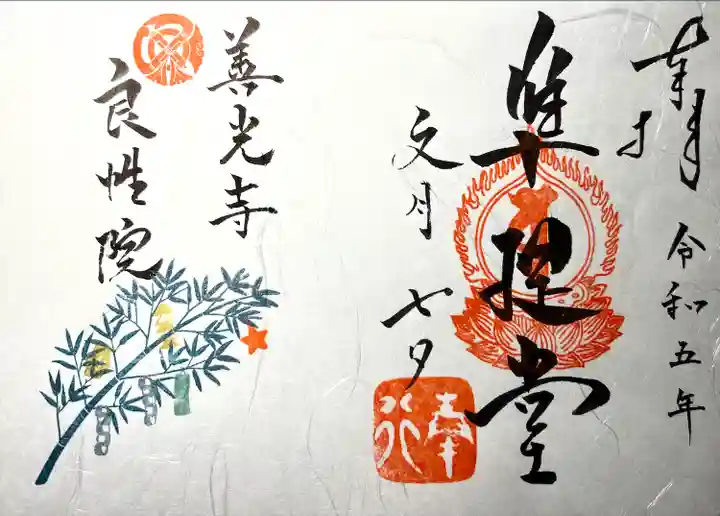 奉拝
令和五年
準提堂
文月
七夕
善光寺
良性院